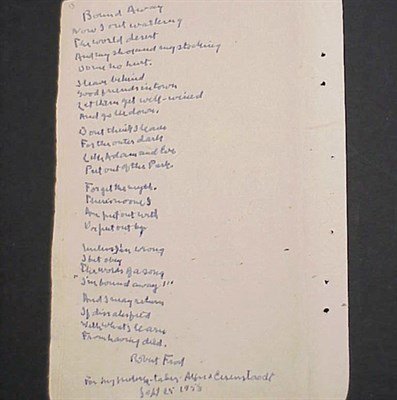 Bound Away
Now I out walking
The world desert
And my shoe and my stocking
Do me no hurt.
I leave behind
Good friends in town
Let them get well-wined
And go lie down.
Don't think I leave
For the outer dark
Like Adam and Eve
Put out of the Park.
Forget the myth.
There is no one I
Am put out with
Or put out by.
Unless I'm wrong
I but obey
The words of a song
"I'm bound away!"
And I may return
If dissatisfied
With what I learn
From having died.
Robert Frost
For my picture-taker Alfred Eisenstaedt
Sept 15 1955